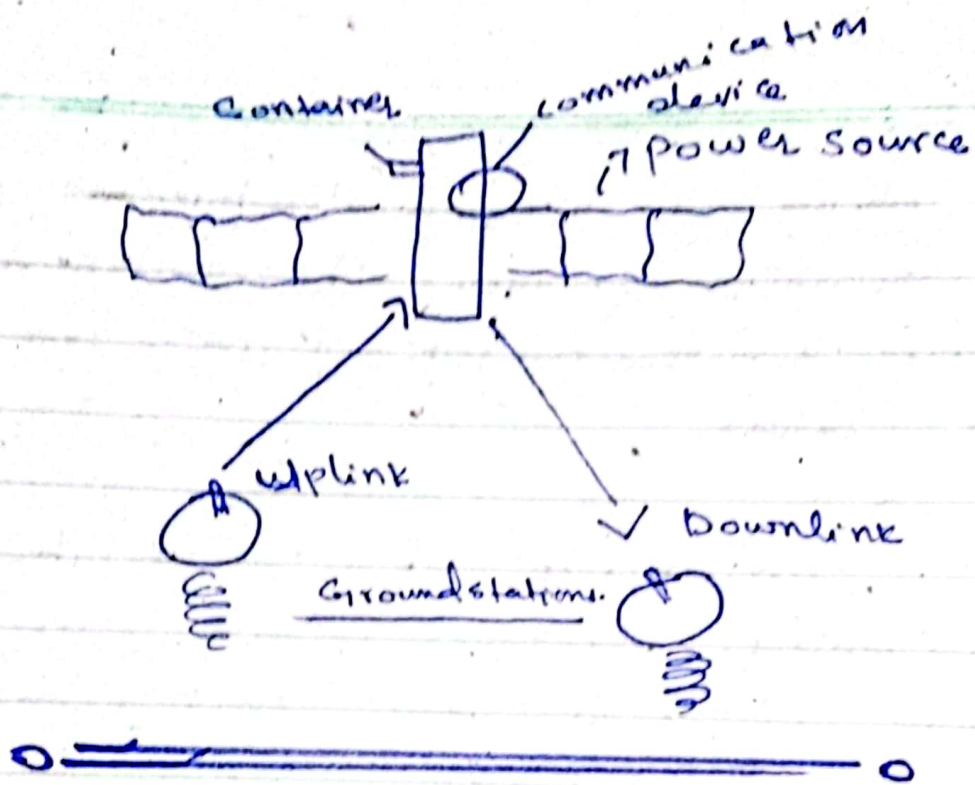 Container
communication
device
Power source
Uplink
Downlink
Groundstations.